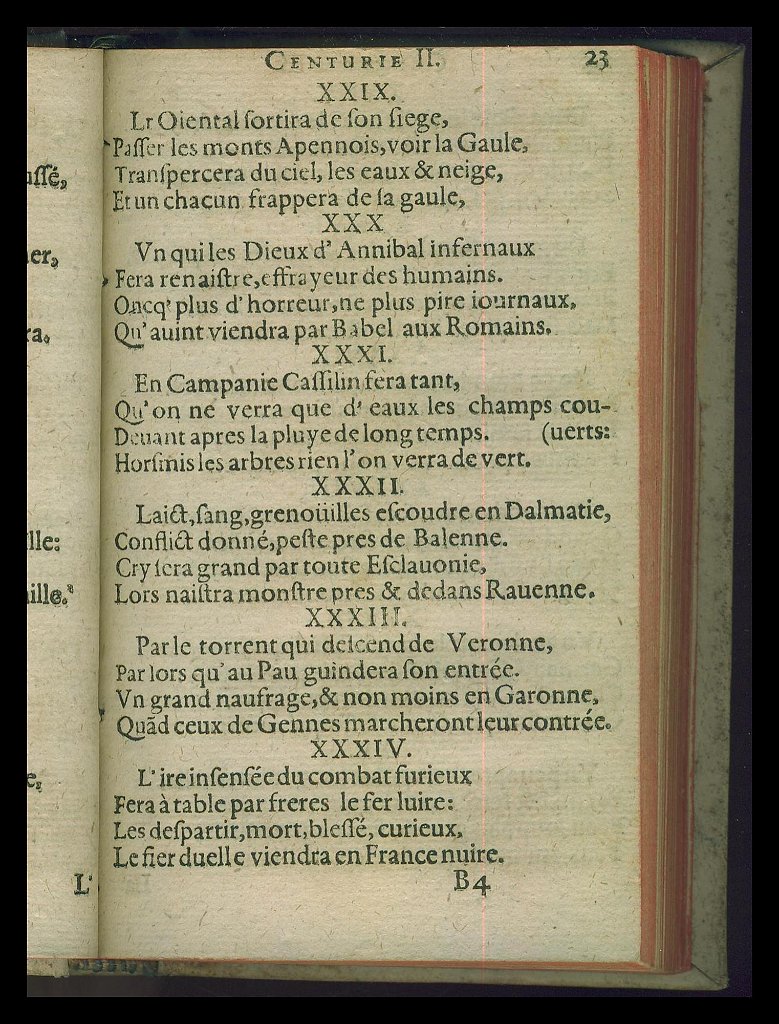 uſſé,
er,
ra.
lle:
ille.
e,
L'
CENTURIE II. 23
XXIX.
Lr Oiental ſortira de ſon ſiege,
Paſſer les monts Apennois, voir la Gaule,
Tranſpercera du ciel, les eaux & neige,
Et un chacun frappera de ſa gaule,
XXX
Vn qui les Dieux d' Annibal infernaux
Fera renaiſtre, effrayeur des humains.
Oncq' plus d' horreur, ne plus pire iournaux,
Qu' auint viendra par Babel aux Romains.
XXXI.
En Campanie Caſſilin fera tant,
Qu' on ne verra que d' eaux les champs cou-
Deuant apres la pluye de long temps. (uerts:
Horſmis les arbres rien l' on verra de vert.
XXXII.
Laict, ſang, grenoüilles eſcoudre en Dalmatie,
Conflict donné, peſte pres de Balenne.
Cry ſera grand par toute Eſclauonie,
Lors naiſtra monſtre pres & dedans Rauenne.
XXXIII.
Par le torrent qui deſcend de Veronne,
Par lors qu' au Pau guindera ſon entrée.
Vn grand naufrage, & non moins en Garonne,
Quãd ceux de Gennes marcheront leur contrée.
XXXIV.
L' ire inſenſée du combat furieux
Fera à table par freres le fer luire:
Les deſpartir, mort, bleſſé, curieux,
Le fier duelle viendra en France nuire.
B4